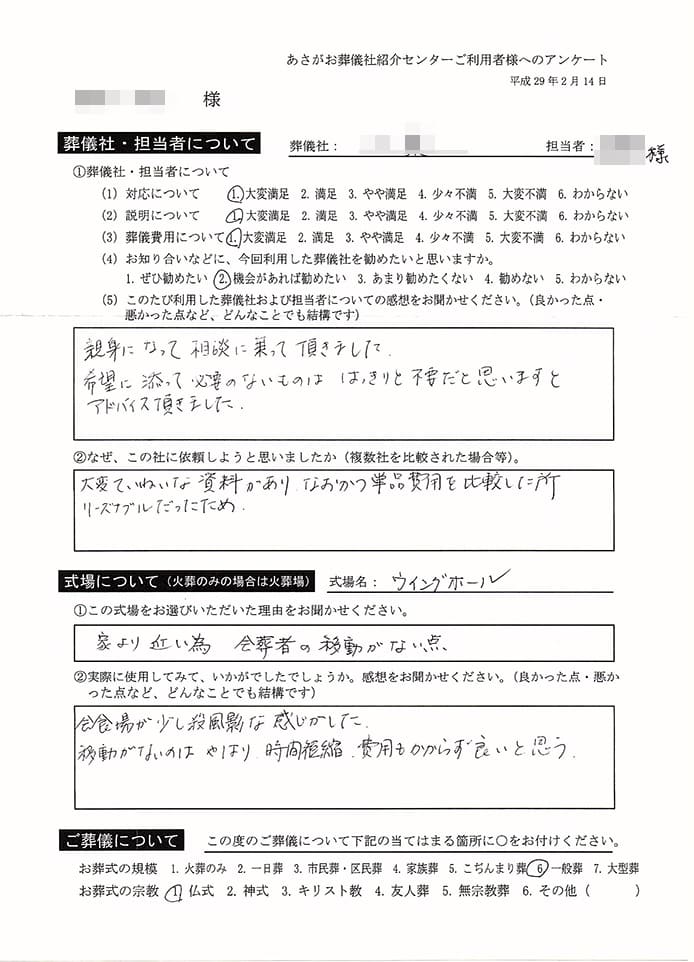 あさがお葬儀社紹介センターご利用者様へのアンケート
平成29年2月14日
様
葬儀社・担当者について 葬儀社： 担当者： 様
①葬儀社・担当者について
(1) 対応について 1.大変満足 2. 満足 3. やや満足 4. 少々不満 5. 大変不満 6. わからない
(2) 説明について 1.大変満足 2. 満足 3. やや満足 4. 少々不満 5. 大変不満 6. わからない
(3) 葬儀費用について 1.大変満足 2. 満足 3. やや満足 4. 少々不満 5. 大変不満 6. わからない
(4) お知り合いなどに、今回利用した葬儀社を勧めたいと思いますか。
1. ぜひ勧めたい 2.機会があれば勧めたい 3. あまり勧めたくない 4. 勧めない 5. わからない
(5) このたび利用した葬儀社および担当者についての感想をお聞かせください。（良かった点・
悪かった点など、どんなことでも結構です）
親身になって相談に乗って頂きました.
希望に添って必要のないものは はっきりと不要だと思いますと
アドバイス頂きました.
②なぜ、この社に依頼しようと思いましたか（複数社を比較された場合等）。
大変ていねいな資料があり.なおかつ単品費用を比較した所
リーズナブルだったため.
式場について（火葬のみの場合は火葬場） 式場名： ウイングホール
①この式場をお選びいただいた理由をお聞かせください。
家より近い為 会葬者の移動がない点.
②実際に使用してみて、いかがでしたでしょうか。感想をお聞かせください。（良かった点・悪か
った点など、どんなことでも結構です）
会食場が少し殺風景な感じがした.
移動がないのは やはり.時間短縮.費用もかからず良いと思う.
ご葬儀について この度のご葬儀について下記の当てはまる箇所に〇をお付けください。
お葬式の規模 1. 火葬のみ 2. 一日葬 3. 市民葬・区民葬 4. 家族葬 5. こぢんまり葬 6.一般葬 7. 大型葬
お葬式の宗教 1.仏式 2. 神式 3. キリスト教 4. 友人葬 5. 無宗教葬 6. その他（ ）